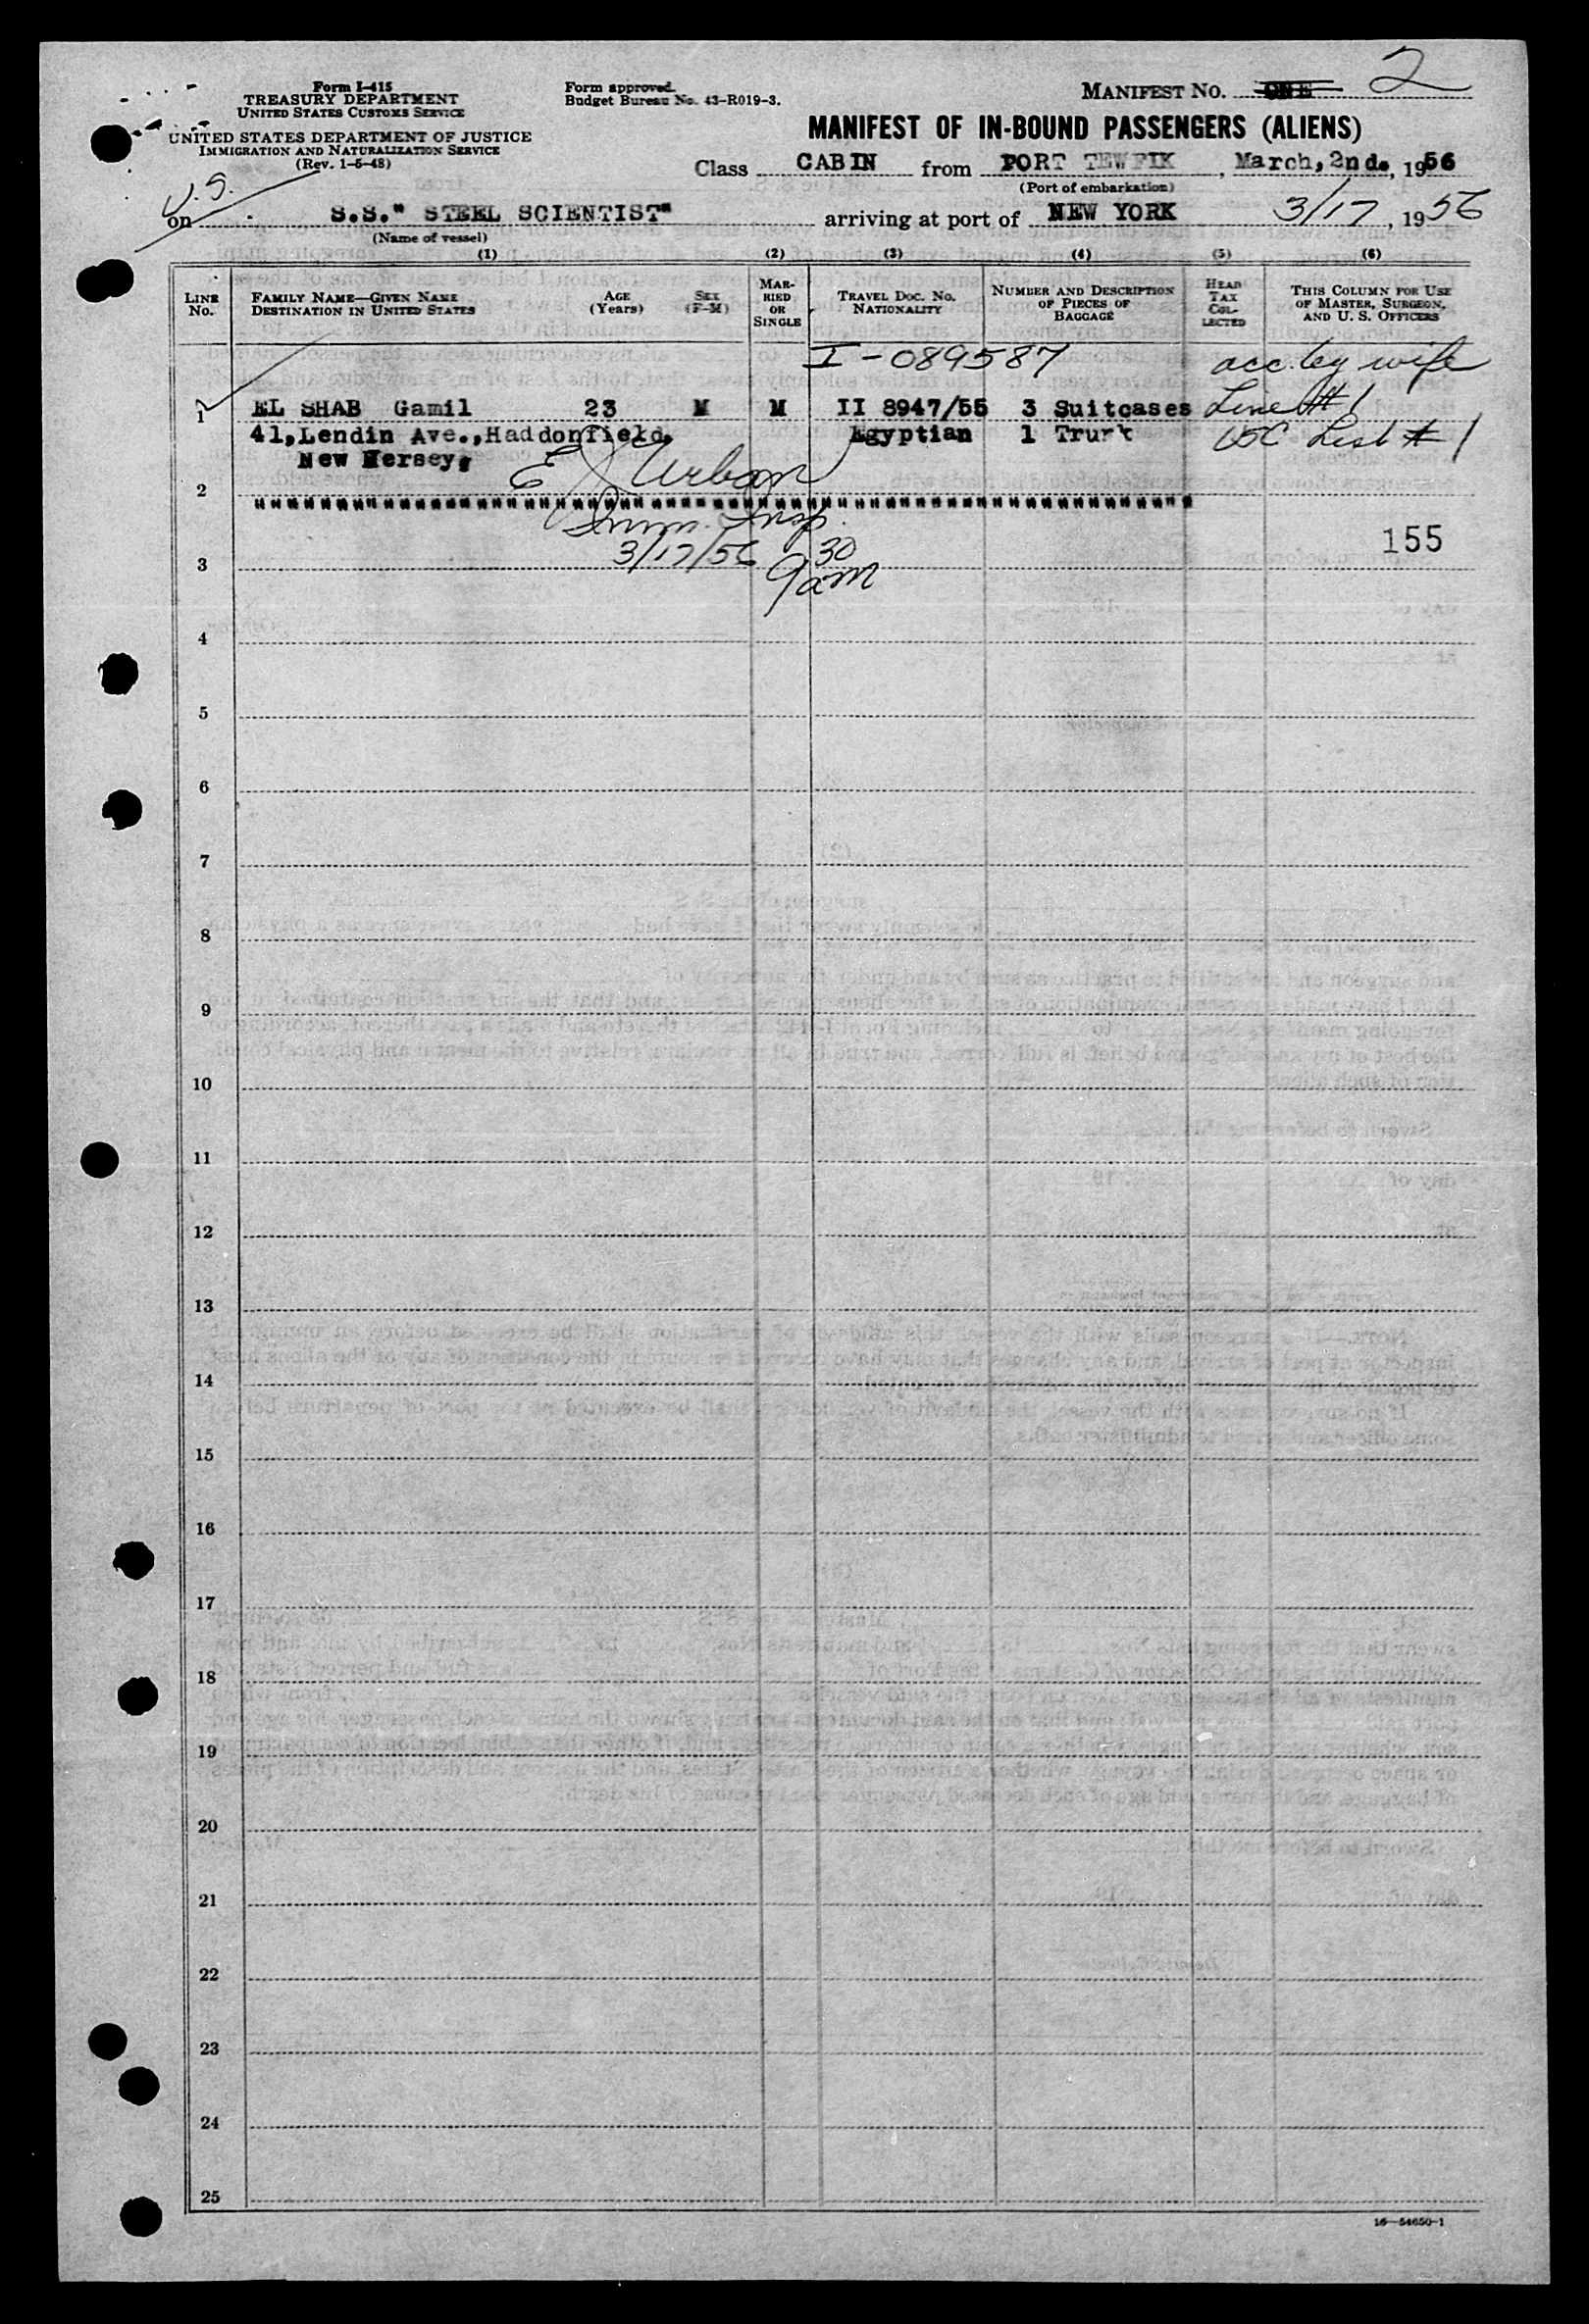 Form I-415
TREASURY DEPARTMENT
UNITED STATES CUSTOMS SERVICE
UNITED STATES DEPARTMENT OF JUSTICE
IMMIGRATION AND NATURALIZATION SERVICE
(Rev. 1-5-48)
Form approved.
Budget Bureau No. 43-R019-3.
MANIFEST No. ONE 2
MANIFEST OF IN-BOUND PASSENGERS (ALIENS)
Class CABIN from PORT TEWFIK, March, 2nd., 1956
(Port of embarkation)
U.S.
on S.S." STEEL SCIENTIST" arriving at port of NEW YORK 3/17, 1956
(Name of vessel)
(1) (2) (3) (4) (5) (6)
LINE No. FAMILY NAME—GIVEN NAME DESTINATION IN UNITED STATES AGE (Years) SEX (F-M) MARRIED OR SINGLE TRAVEL DOC. No. NATIONALITY NUMBER AND DESCRIPTION OF PIECES OF BAGGAGE HEAD TAX COLLECTED THIS COLUMN FOR USE OF MASTER, SURGEON, AND U. S. OFFICERS
I-089587 acc. by wife
1 EL SHAB Gamil 23 M M II 8947/55 3 Suitcases Line # 1
41,Lendin Ave.,Haddonfield, Egyptian 1 Trunk USC List # 1
New Mersey,
E J Urban
2
Imm. Insp.
155
3/17/56 9 30 am
3
4
5
6
7
8
9
10
11
12
13
14
15
16
17
18
19
20
21
22
23
24
25
16—54650-1